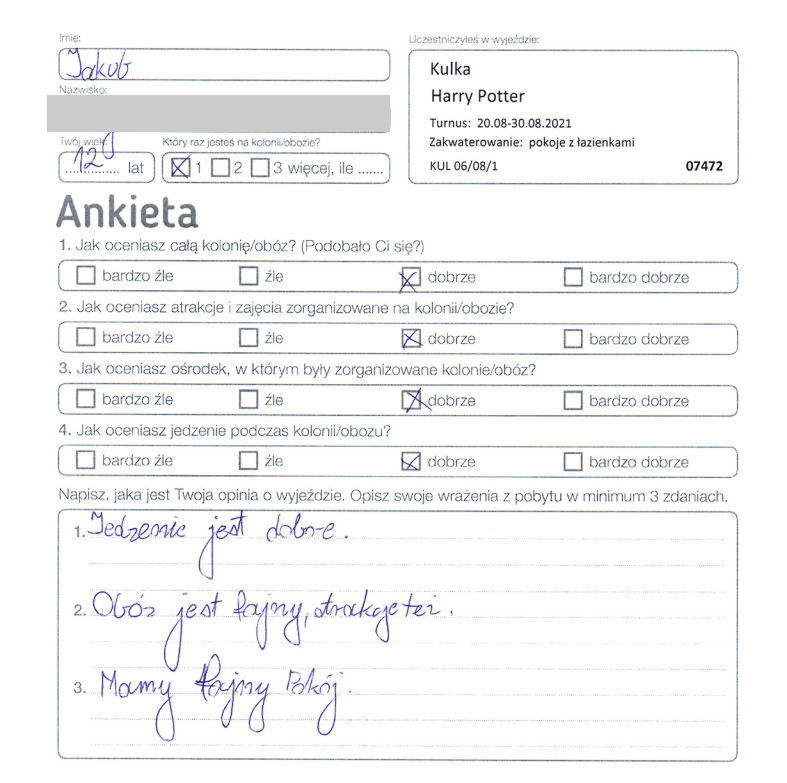 Imię:
Jakub
Uczestniczyłeś w wyjeździe:
Kulka
Harry Potter
Turnus: 20.08-30.08.2021
Zakwaterowanie: pokoje z łazienkami
KUL 06/08/1 07472
Nazwisko:
Twój wiek:
12 lat
Który raz jesteś na kolonii/obozie?
1 2 3 więcej, ile .......
Ankieta
1. Jak oceniasz całą kolonię/obóz? (Podobało Ci się?)
bardzo źle źle dobrze bardzo dobrze
2. Jak oceniasz atrakcje i zajęcia zorganizowane na kolonii/obozie?
bardzo źle źle dobrze bardzo dobrze
3. Jak oceniasz ośrodek, w którym były zorganizowane kolonie/obóz?
bardzo źle źle dobrze bardzo dobrze
4. Jak oceniasz jedzenie podczas kolonii/obozu?
bardzo źle źle dobrze bardzo dobrze
Napisz, jaka jest Twoja opinia o wyjeździe. Opisz swoje wrażenia z pobytu w minimum 3 zdaniach.
1. Jedzenie jest dobre.
2. Obóz jest fajny, atrakcje też.
3. Mamy fajny Pokój.